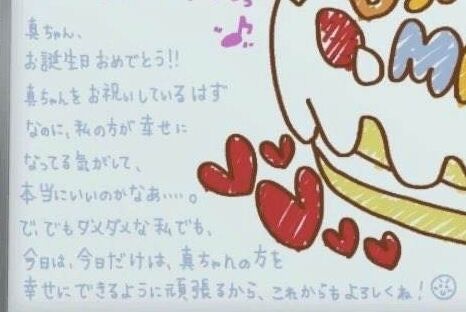 真ちゃん、
お誕生日おめでとう!!
真ちゃんをお祝いしているはず
なのに、私の方が幸せに
なってる気がして、
本当にいいのかなあ・・・・。
で、でもダメダメな私でも、
今日は、今日だけは、真ちゃんの方を
幸せにできるように頑張るから、これからもよろしくね!